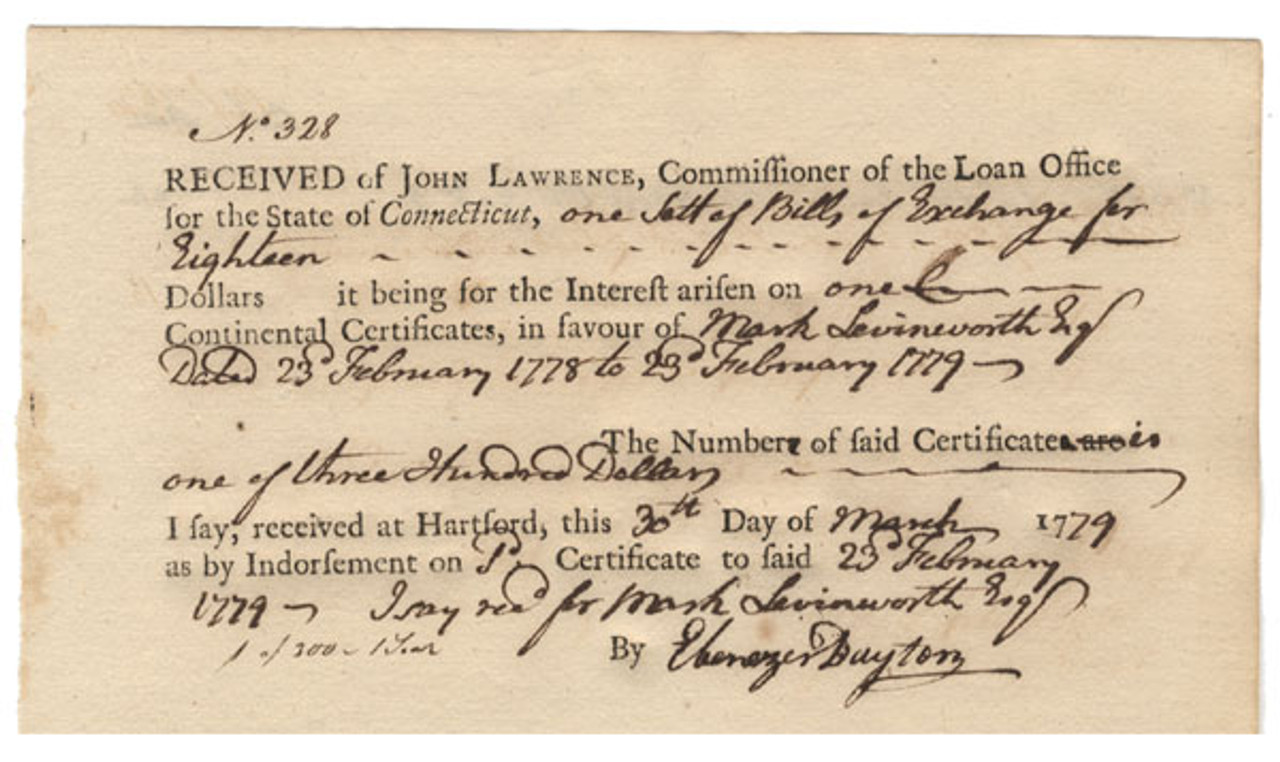 No. 328
RECEIVED of JOHN LAWRENCE, Commiſſioner of the Loan Office
for the State of Connecticut, one Sett of Bills of Exchange for
Eighteen
Dollars it being for the Intereſt ariſen on one
Continental Certificates, in favour of Mark Levineworth Esqr
Dated 23d February 1778 to 23d February 1779
The Number of ſaid Certificate is
one of three Hundred Dollars
I ſay, received at Hartford, this 30th Day of March 1779
as by Indorſement on Sd. Certificate to ſaid 23d February
1779 I say recd for Mark Levineworth Esqr
1 of 300 1 Year
By Ebenezer Dayton